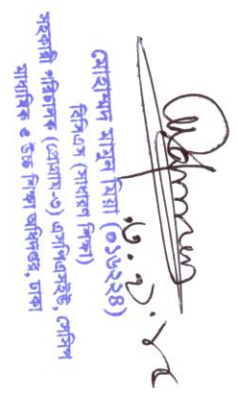 মোহাম্মদ মামুন মিয়া (০১৮২২৪)
বিসিএস (সাধারণ শিক্ষা)
সহকারী পরিচালক (প্রোগ্রাম-৩) এসপিএসইউ, সেসিপ
মাধ্যমিক ও উচ্চ শিক্ষা অধিদপ্তর, ঢাকা